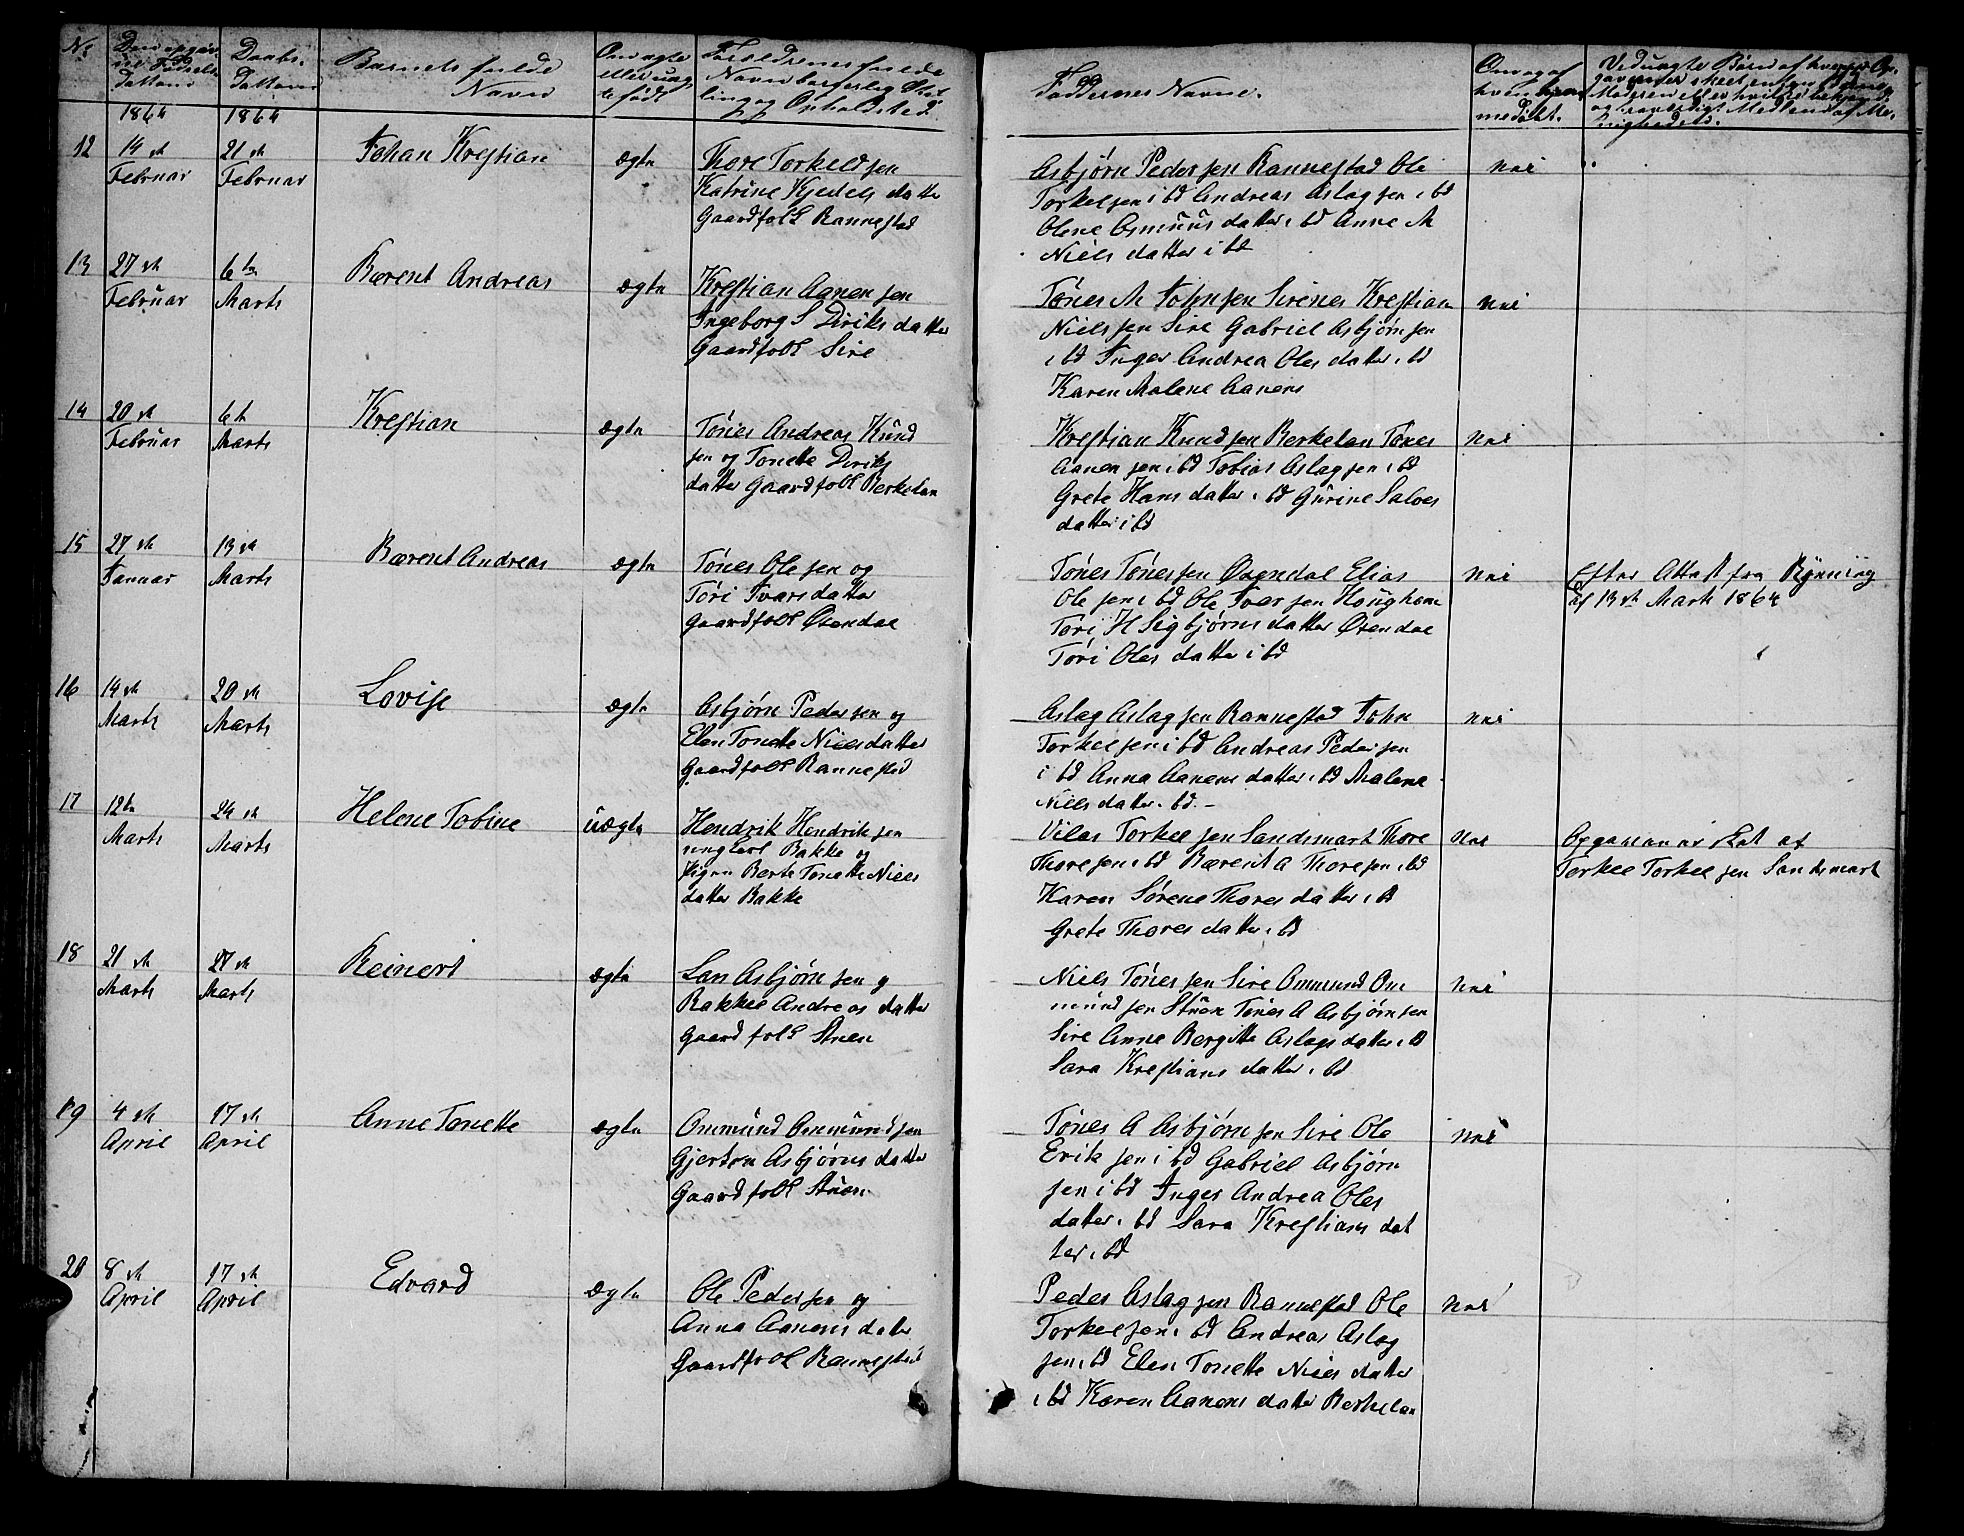 No
Den opgivne Fødsels Dattoer
Daabs-Dattoer
Barnets fulde Navn
Om ægte eller uægte født
Forældrenes fulde Navn borgerlig Stilling og Opholdsted.
Faddernes Navne.
Om og af hvem hjemmedøbt.
1864
1864
12
14 de
Februar
21 de
Februar
Johan Krestian
ægte
Thore Torkeldsen
Katrine Kjedels datte
Gaardfolk Rannestad
Asbjørn Peder sen Rannestad Ole
Torkelsen i bd Andreas Aslagsen i bd
Olene Osmuns datter i bd Anne M
Niels datter i bd
nei
13
27 de
Februar
6te
Marts
Bærent Andreas
ægte
Krestian Aanensen
Ingeborg S Diriks datter
Gaardfolk Sire
Tønes M Johnsen Sirenes Krestian
Nielssen Sire Gabriel Asbjørnsen
i bd Inger Andrea Oles datter i bd
Karen Malene Aanens
nei
14
20 de
Februar
6te
Marts
Krestian
ægte
Tønes Andreas Knud
sen og Tonette Diriks
datter Gaardfolk Berkelan
Krestian Knudsen Berkelan Tønes
Aanensen i bd Tobias Aslagsen i bd
Grete Hans datter i bd Gurine Salves
datter i bd
nei
15
27 de
Januar
13 de
Marts
Bærent Andreas
ægte
Tønes Olesen og
Tøri Ivarsdatter
Gaardfolk Øxendal
Tønes Tønessen Øxendal Elias
Olesen i bd Ole Ivarsen Houghom
Tøri H Sigbjørns datter Øxendal
Tøri Oles datter i bd
nei
Efter Attest fra Rynning
af 13de Marts 1864
16
14 de
Marts
20 de
Marts
Lovise
ægte
Asbjørn Pedersen og
Elen Tonette Nielsdatter
Gaardfolk Rannestad
Aslag Aslagsen Rannestad John
Torkelsen i bd Andreas Pedersen
i bd Anna Aanens datter i bd Malene
Niels datter i bd. –
nei
17
12te
Marts
24 de
Marts
Helene Tobine
uægte
Hendrik Hendriksen
ungkarl Bakke og
Pigen Berte Tonette Niels
datter Bakke
Vilas Torkelsen Sandsmart Thore
Thoresen i bd Bærent A Thoresen i bd
Karen Sørene Thores datter i bd
Grete Thores datter i bd
nei
Opgaven er sket af
Torkel Torkelsen Sandsmart
18
21 de
Marts
27 de
Marts
Reinert
ægte
Lars Asbjørnsen og
Rakkel Andreas datter
Gaardfolk Stuen
Niels Tønessen Sire Ommund Om
mundsen Stuen Tønes A Asbjørnsen
Sire Anne Bergitte Aslags datter i bd
Sara Krestians datter i bd
nei
19
4 de
April
17 de
April
Anne Tonette
ægte
Ommund Ommundsen
Gjertrøn Asbjørns datter
Gaardfolk Stuen.
Tønes A Asbjørnsen Sire Ole
Eriksen i bd Gabriel Asbjørn
sen i bd Inger Andrea Oles
datter i bd Sara Krestians dat
ter i bd
nei
20
8 de
April
17 de
April
Edvard
ægte
Ole Pedersen og
Anna Aanens datter
Gaardfolk Rannestad
Peder Aslagsen Rannestad Ole
Torkelsen i bd Andreas Aslag
sen i bd Elen Tonette Niels datter
i bd Karen Aanens datter Berkelan
nei